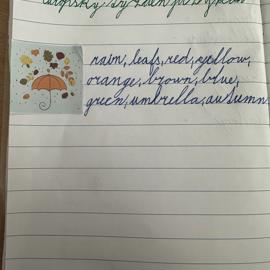 rain, leafs, red, yellow,
orange, brown, blue,
green, umbrella, autumn